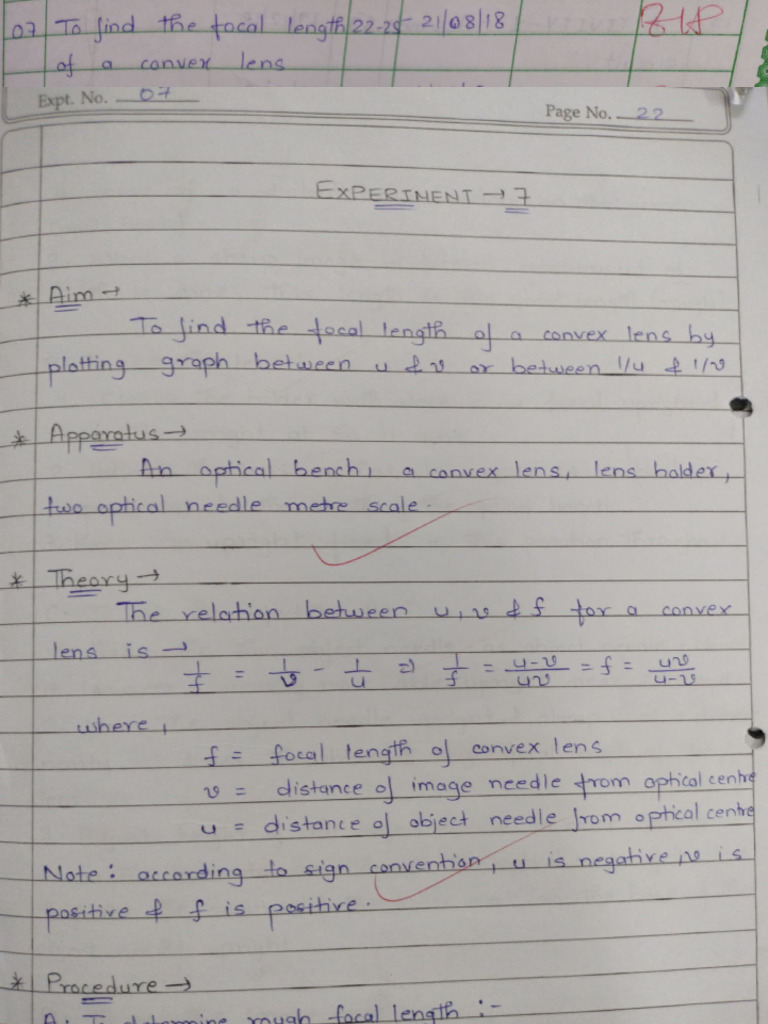 07 To find the focal length 22-25 21/08/18
of a convex lens
Expt. No. 07
Page No. 22
EXPERIMENT → 7
* Aim →
To find the focal length of a convex lens by
plotting graph between u & v or between 1/u & 1/v
* Apparatus →
An optical bench, a convex lens, lens holder,
two optical needle metre scale.
* Theory →
The relation between u, v & f for a convex
lens is →
1/f = 1/v - 1/u ⇒ 1/f = u-v/uv = f = uv/u-v
where,
f = focal length of convex lens
v = distance of image needle from optical centre
u = distance of object needle from optical centre
Note: according to sign convention, u is negative, v is
positive & f is positive.
* Procedure →
A. To determine rough focal length :-